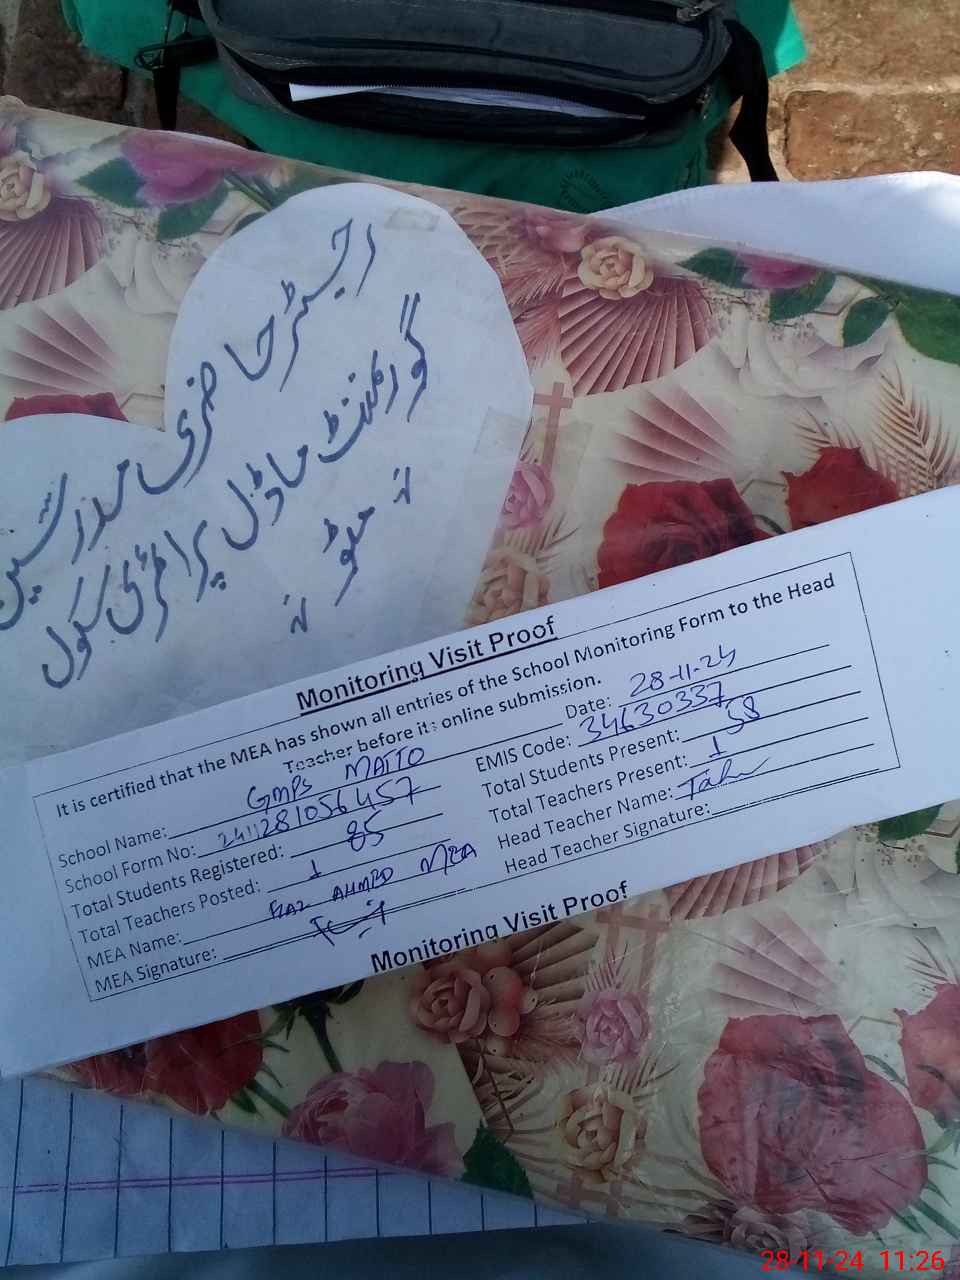 رجسٹر حاضری مدرسین
گورنمنٹ ماڈل پرائمری سکول
میٹو
Monitoring Visit Proof
It is certified that the MEA has shown all entries of the School Monitoring Form to the Head
Teacher before its online submission.
School Name: GMPS MAITO Date: 28-11-24
School Form No: 2411281056457 EMIS Code: 34630337
Total Students Registered: 85 Total Students Present: 58
Total Teachers Posted: 1 Total Teachers Present: 1
MEA Name: AHMED MEA Head Teacher Name:
MEA Signature: Head Teacher Signature:
Monitoring Visit Proof
28-11-24 11:26